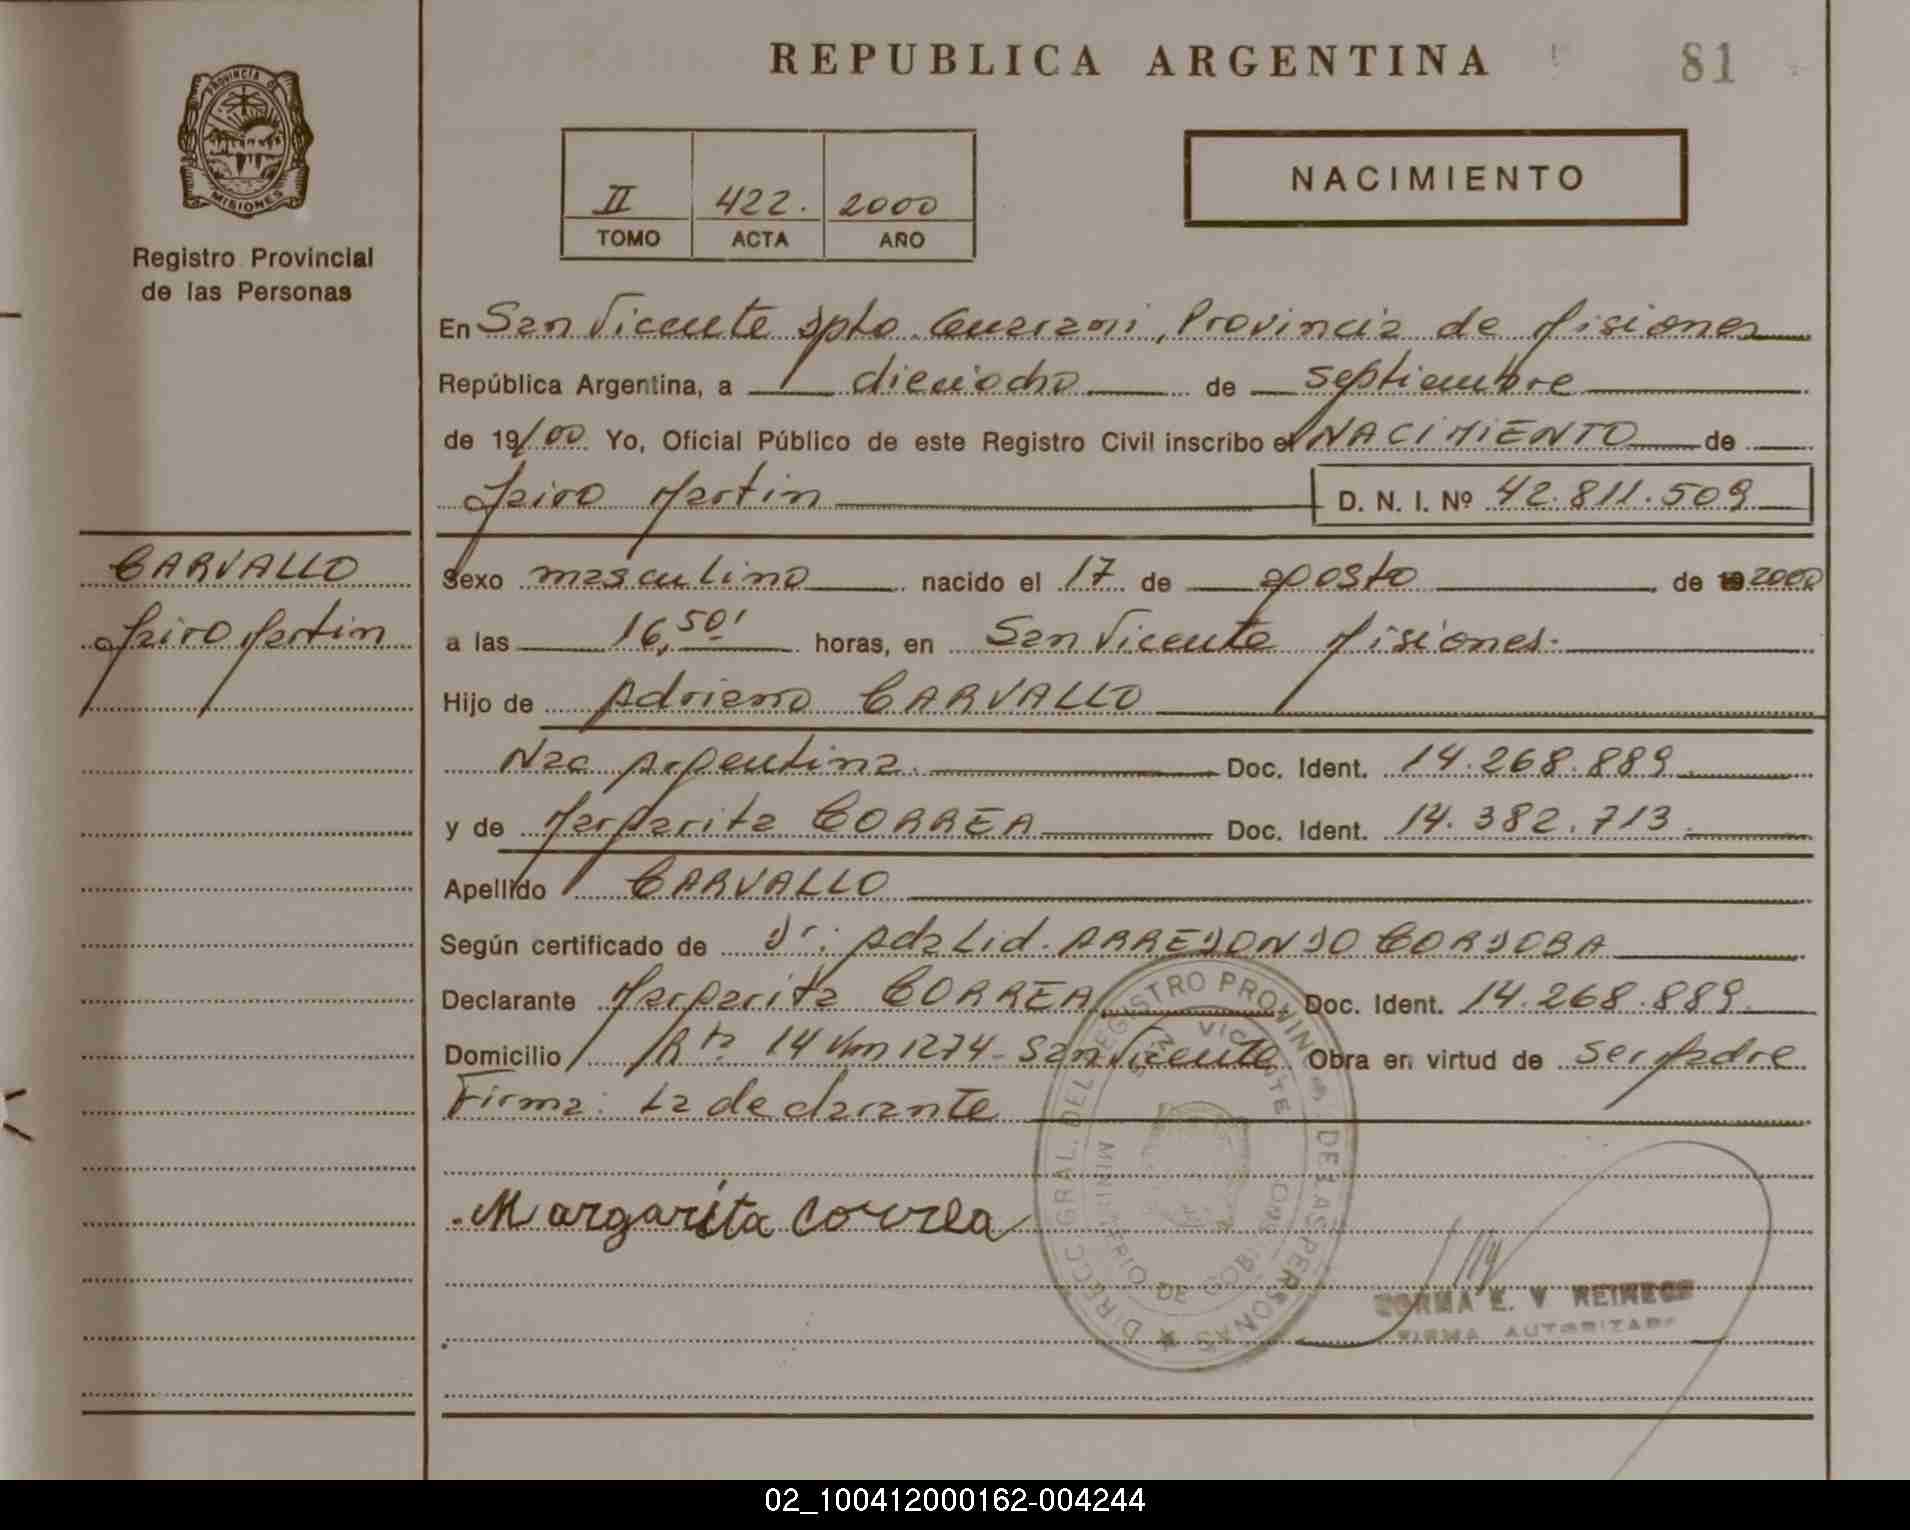 REPUBLICA ARGENTINA
81
PROVINCIA DE
MISIONES
Registro Provincial
de las Personas
II 422. 2000
TOMO ACTA AÑO
NACIMIENTO
En San Vicente Dpto. Guarani, Provincia de Misiones
República Argentina, a dieciocho de septiembre
de 19/00 Yo, Oficial Público de este Registro Civil inscribo el NACIMIENTO de
Jairo Martin D. N. I. Nº 42.811.509
CARVALLO
Jairo Martin
Sexo masculino nacido el 17 de agosto de 2000
a las 16,50' horas, en San Vicente Misiones.
Hijo de Adriano CARVALLO
Nac Argentina. Doc. Ident. 14.268.889
y de Margarita CORREA Doc. Ident. 14.382.713.
Apellido CARVALLO
Según certificado de Dr: Adalid. ARREDONDO CORDOBA
Declarante Margarita CORREA Doc. Ident. 14.268.889.
Domicilio R 14 Km 1274- San Vicente Obra en virtud de ser Madre
Firma: La declarante
DIRECC. GRAL. DEL REGISTRO PROVINCIAL DE LAS PERSONAS
SAN VICENTE
MINISTERIO DE GOB.
Margarita Correa
NORMA E. V
FIRMA AUTORIZADA
02_100412000162-004244